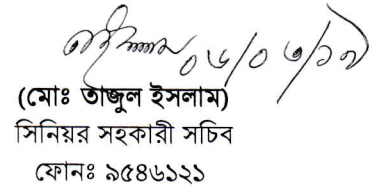 ০৬/০৩/১৭
(মোঃ তাজুল ইসলাম)
সিনিয়র সহকারী সচিব
ফোনঃ ৯৫৪৬১২১